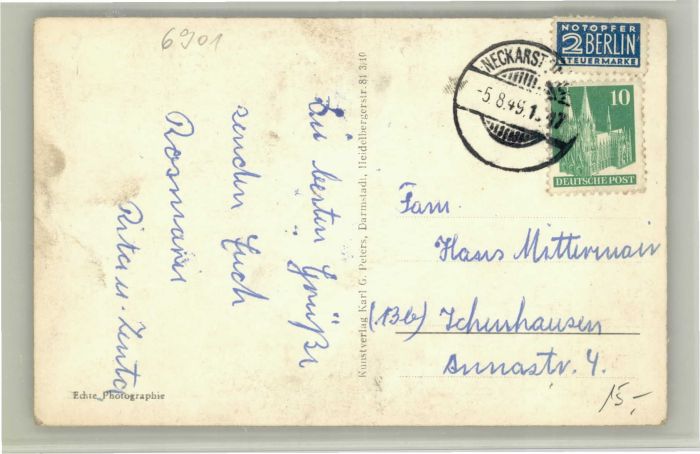 6901
NOTOPFER
2 BERLIN
STEUERMARKE
NECKARST
-5.8.49.1
10
DEUTSCHE POST
Die besten Grüße
senden Euch
Rosmarie
Rita u. Zenta
Kunstverlag Karl G. Peters, Darmstadt, Heidelbergerstr. 81 3/10
Fam.
Hans Mittermair
(13b) Ichenhausen
Annastr. 4.
Echte Photographie
15,-